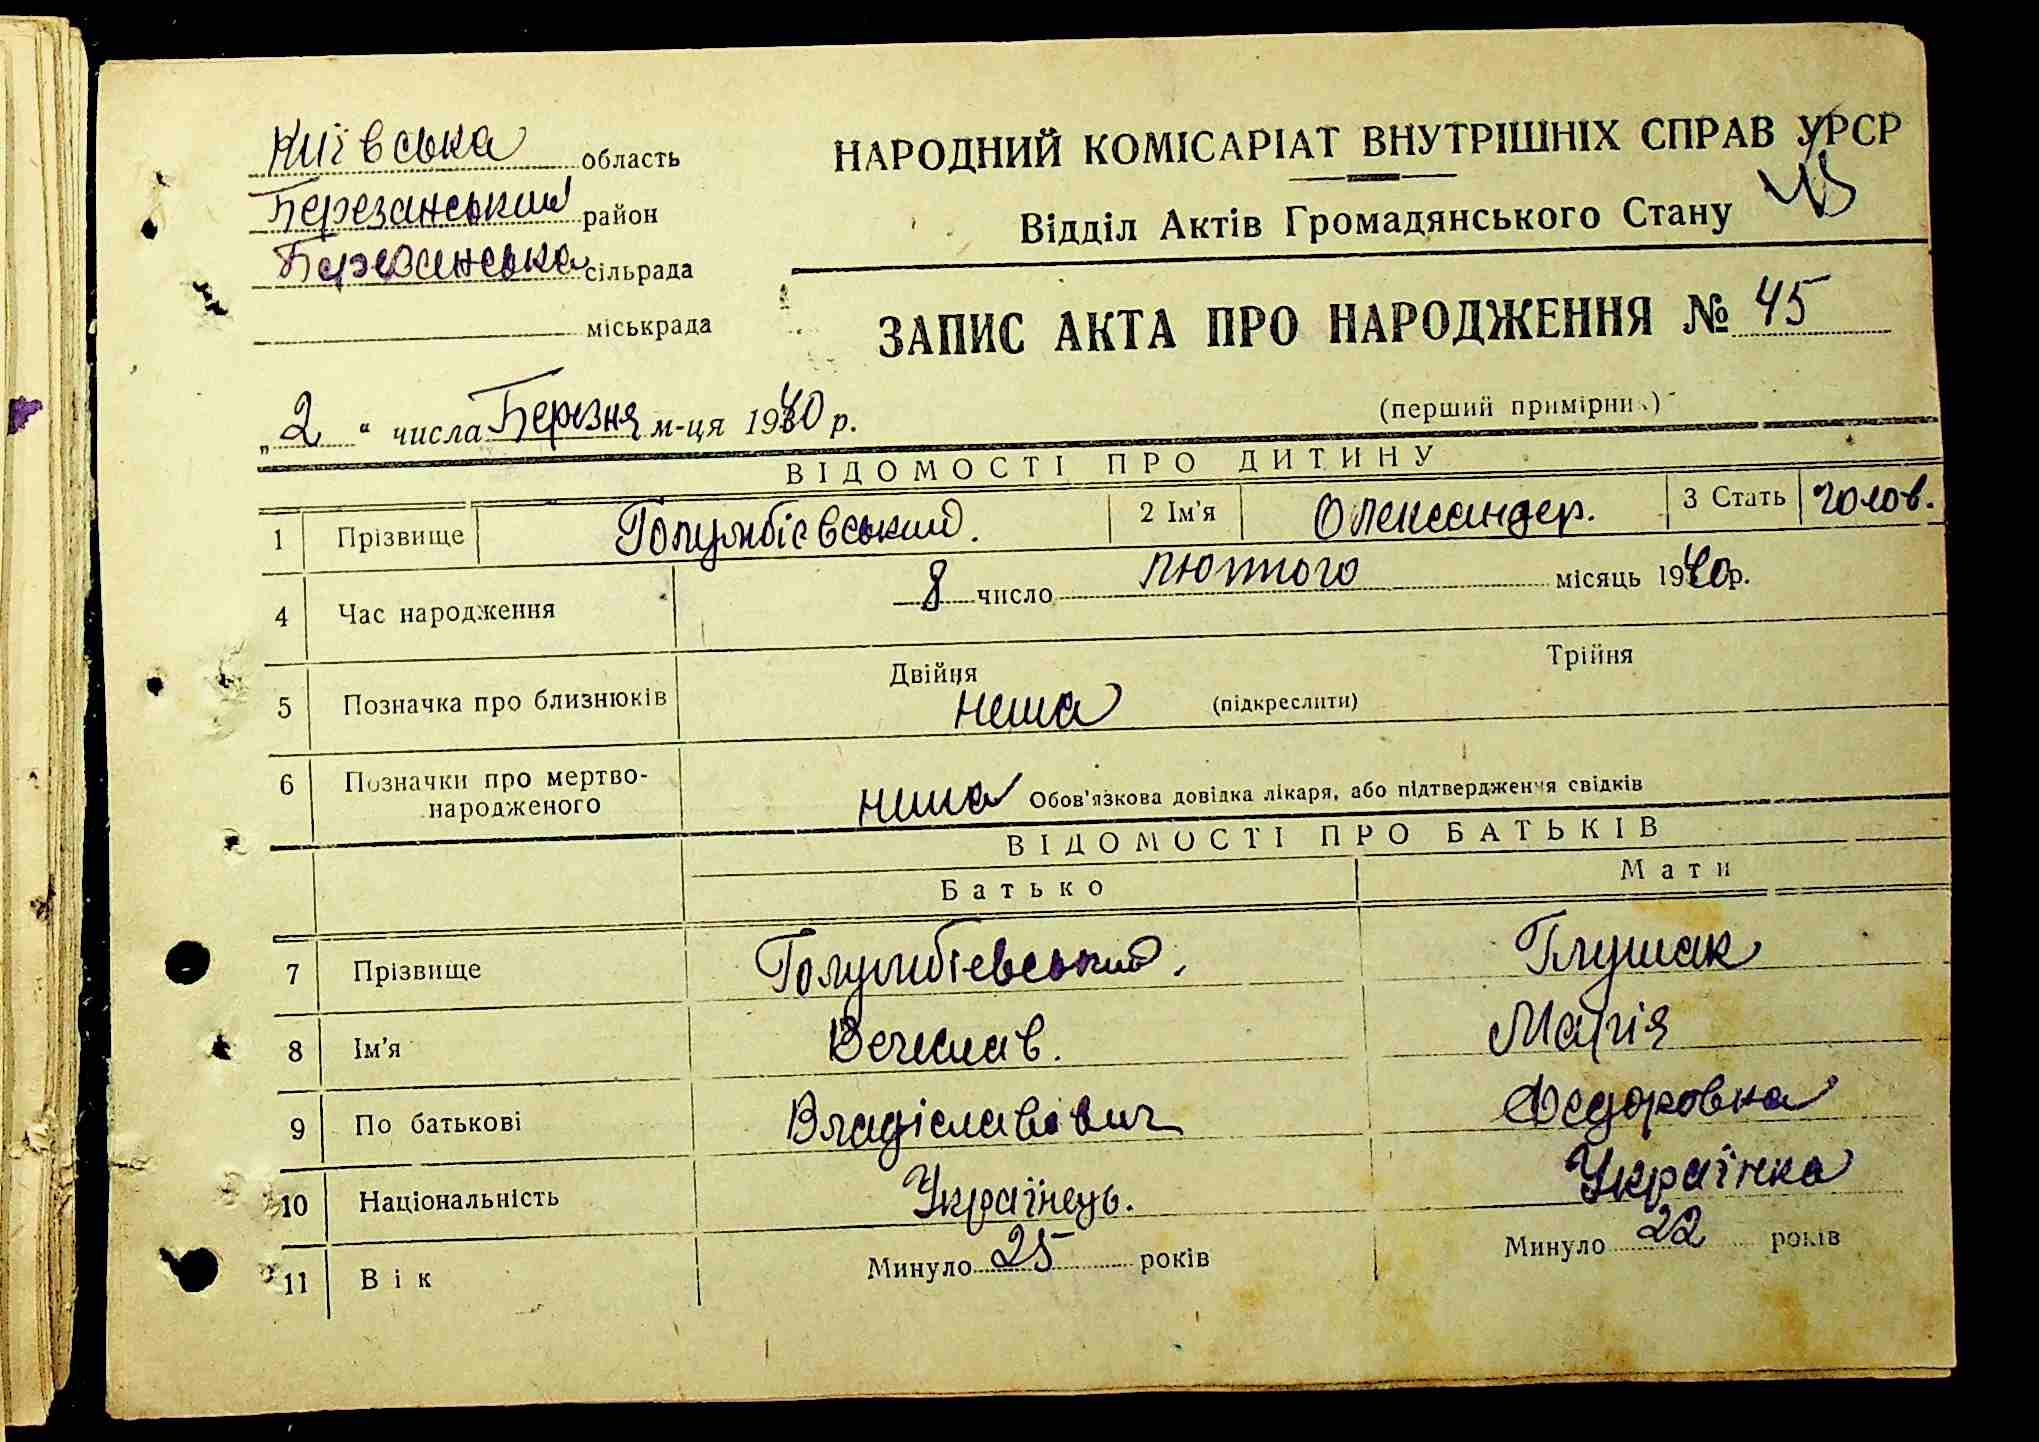 Київська область
Березанський район
Березанська сільрада
міськрада
НАРОДНИЙ КОМІСАРІАТ ВНУТРІШНІХ СПРАВ УРСР
Відділ Актів Громадянського Стану
45
ЗАПИС АКТА ПРО НАРОДЖЕННЯ № 45
(перший примірник)
„2“ числа Березня м-ця 1940 р.
ВІДОМОСТІ ПРО ДИТИНУ
1 Прізвище Голумбієвський. 2 Ім'я Олександер. 3 Стать чолов.
4 Час народження 8 число лютого місяць 1940 р.
5 Позначка про близнюків Двійня Трійня
нема (підкреслити)
6 Позначки про мертво-народженого нема Обов'язкова довідка лікаря, або підтвердження свідків
ВІДОМОСТІ ПРО БАТЬКІВ
Батько Мати
7 Прізвище Голумбієвський. Глушак
8 Ім'я Вечеслав. Марія
9 По батькові Владіславович Федоровна
10 Національність Українець. Українка
11 Вік Минуло 25 років Минуло 22 років